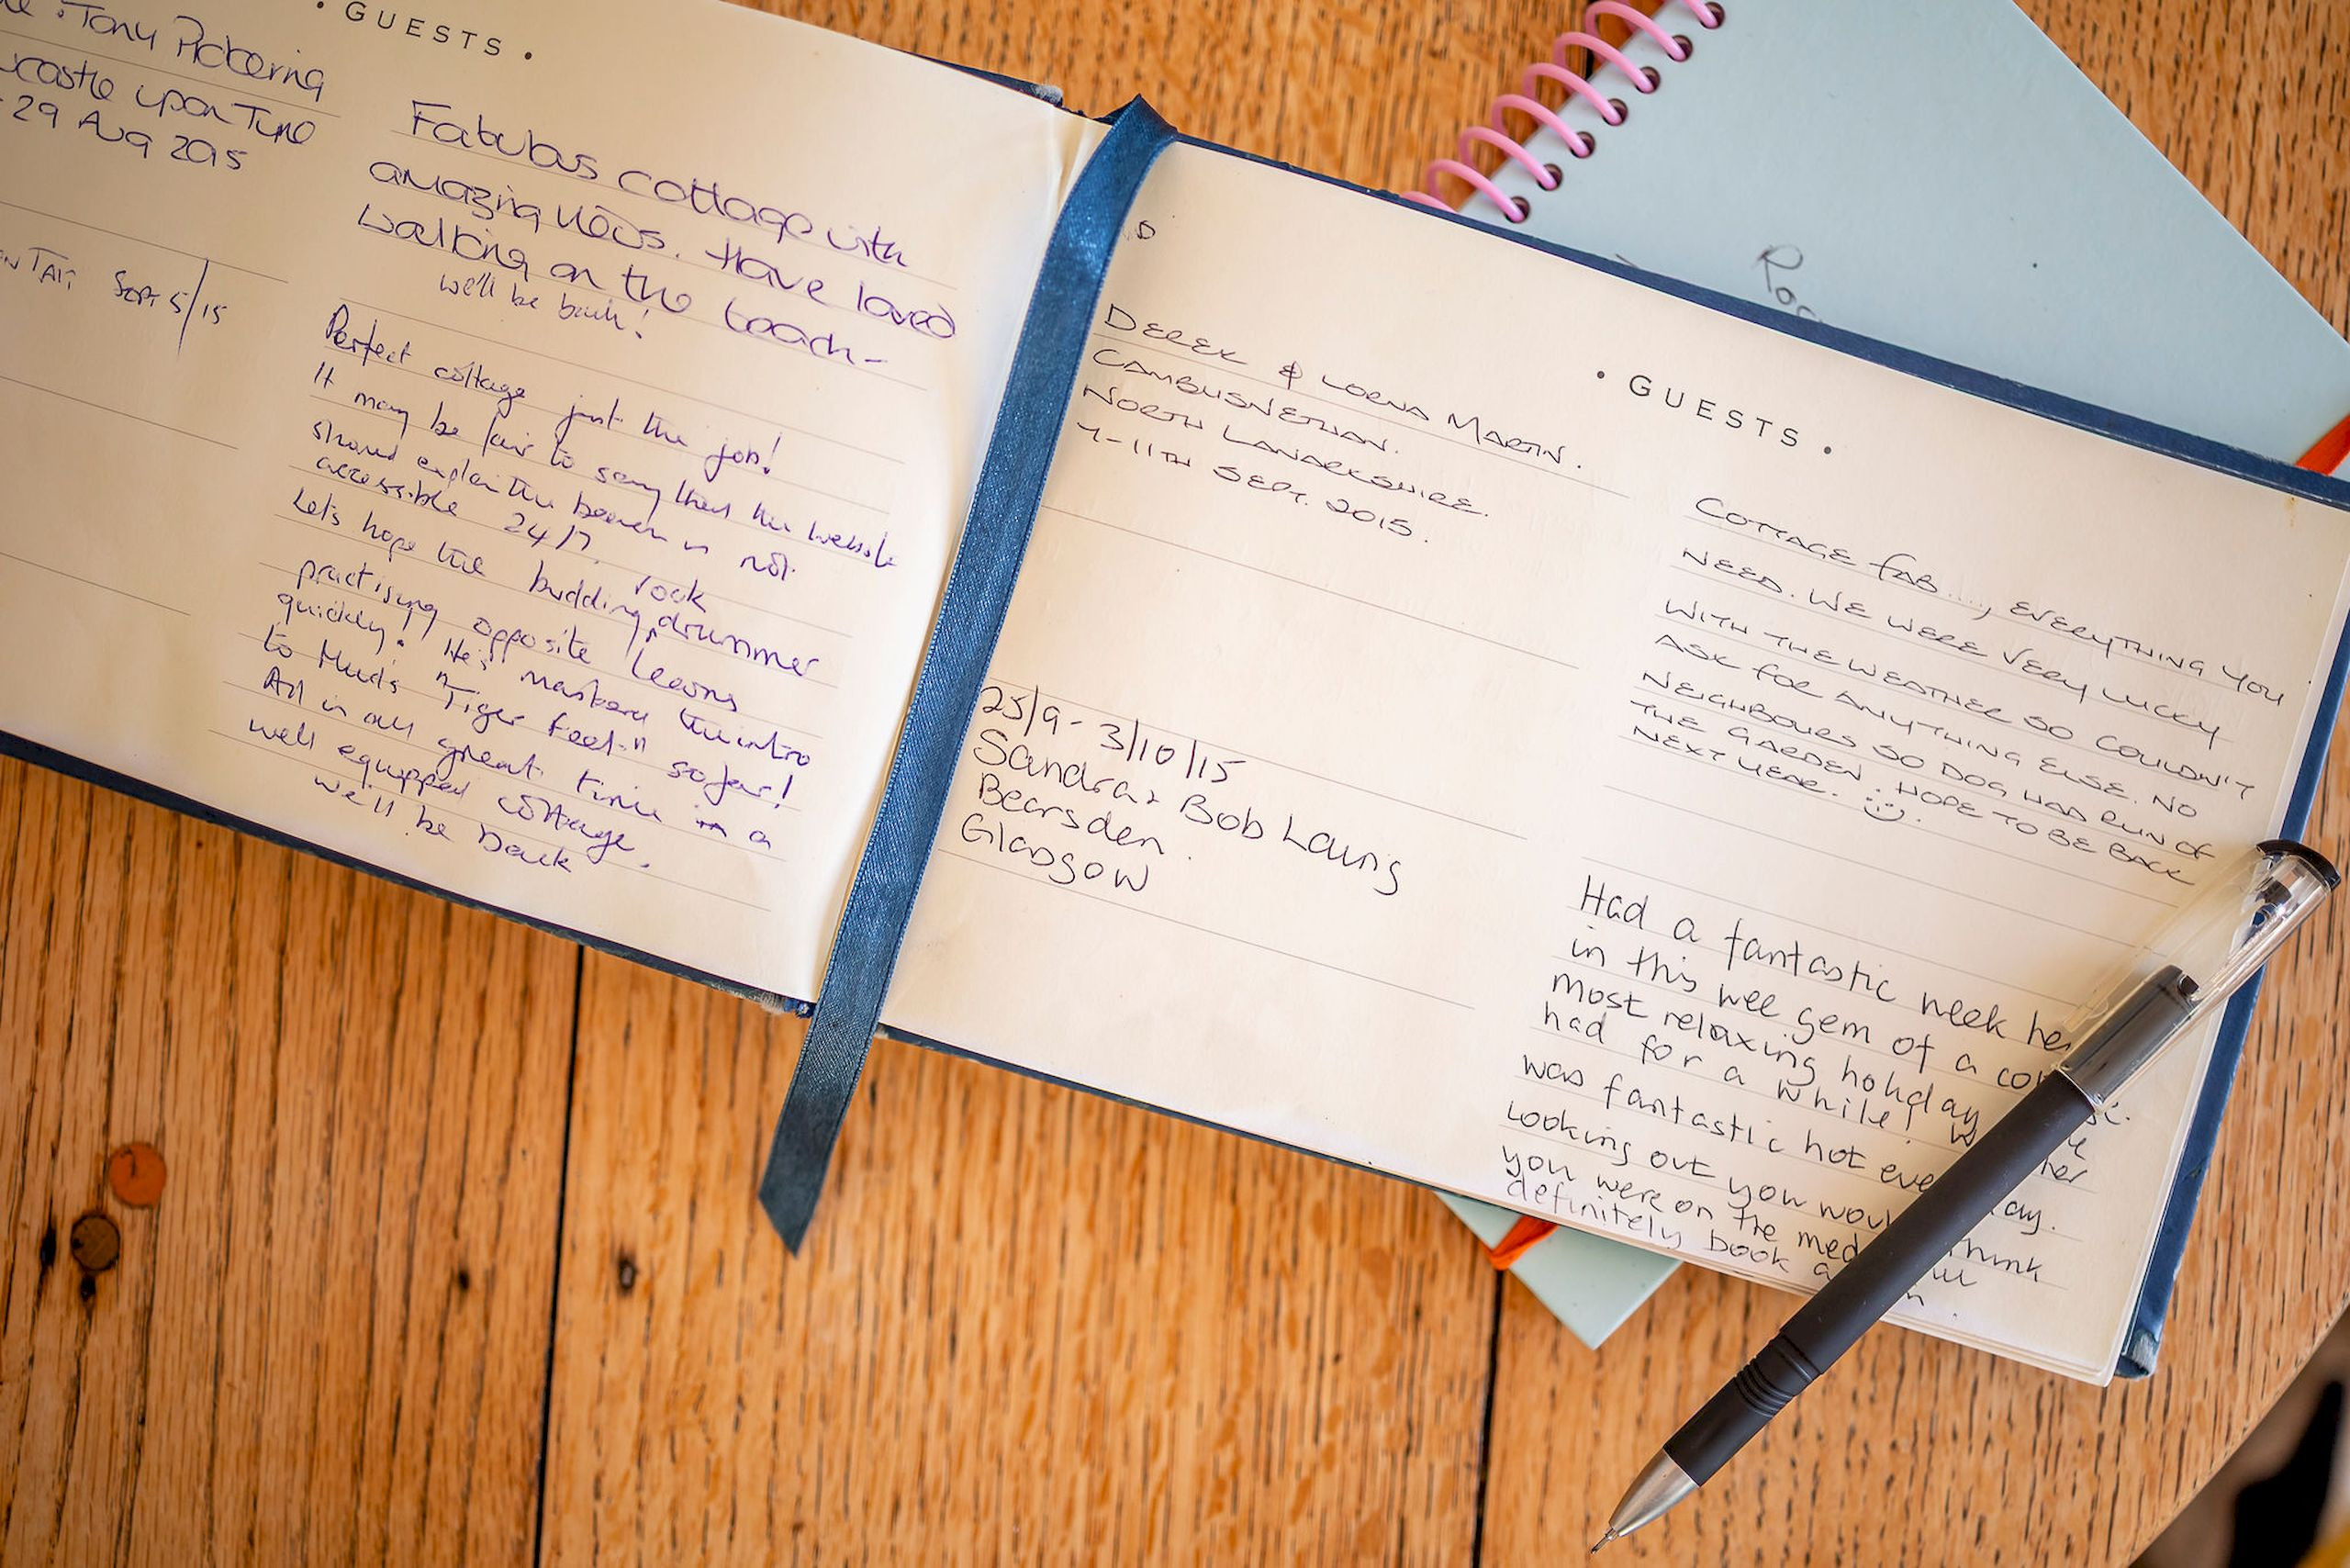 • GUESTS •
Tony Pickering
upon Tyne
29 Aug 2015
Fabulous cottage with
amazing views. Have loved
walking on the beach -
we'll be back!
Sept 5/15
Perfect cottage just the job!
It may be fair to say that the website
should explain the beach is not
accessible 24/7.
Let's hope the budding rock drummer
practising opposite learns
quickly! He's mastered the intro
to Mud's "Tiger Feet" so far!
All in all great time in a
well equipped cottage.
we'll be back
• GUESTS •
DEREK & LORNA MARTIN.
CAMBUSNETHAN.
NORTH LANARKSHIRE.
7-11TH SEPT. 2015.
COTTAGE FAB...., EVERYTHING YOU
NEED. WE WERE VERY LUCKY
WITH THE WEATHER SO COULDN'T
ASK FOR ANYTHING ELSE. NO
NEIGHBOURS SO DOG HAD RUN OF
THE GARDEN. HOPE TO BE BACK
NEXT YEAR.
25/9 - 3/10/15
Sandra + Bob Laing
Bearsden.
Glasgow
Had a fantastic week
in this wee gem of a
most relaxing holiday
had for a while!
was fantastic hot
Looking out you think
you were on the
definitely book